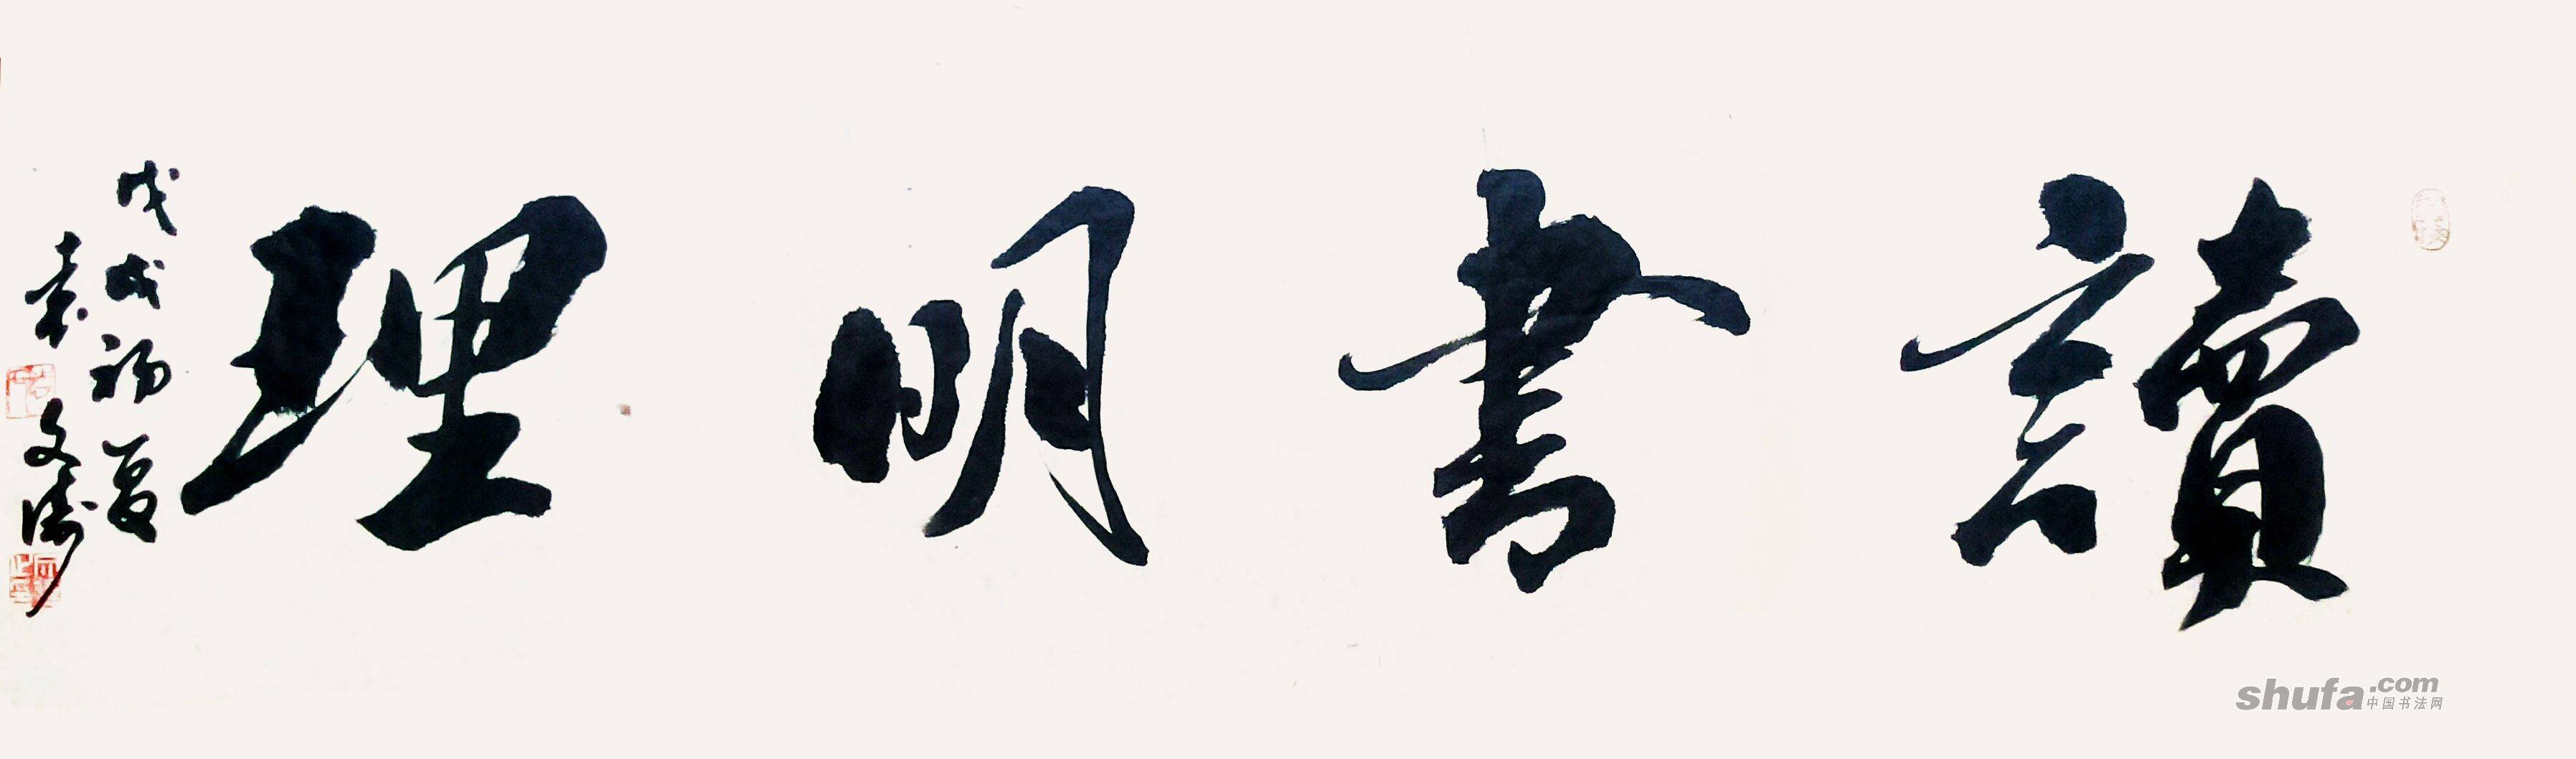 讀書明理
戊戌初夏
袁文濤
shufa.com
中国书法网